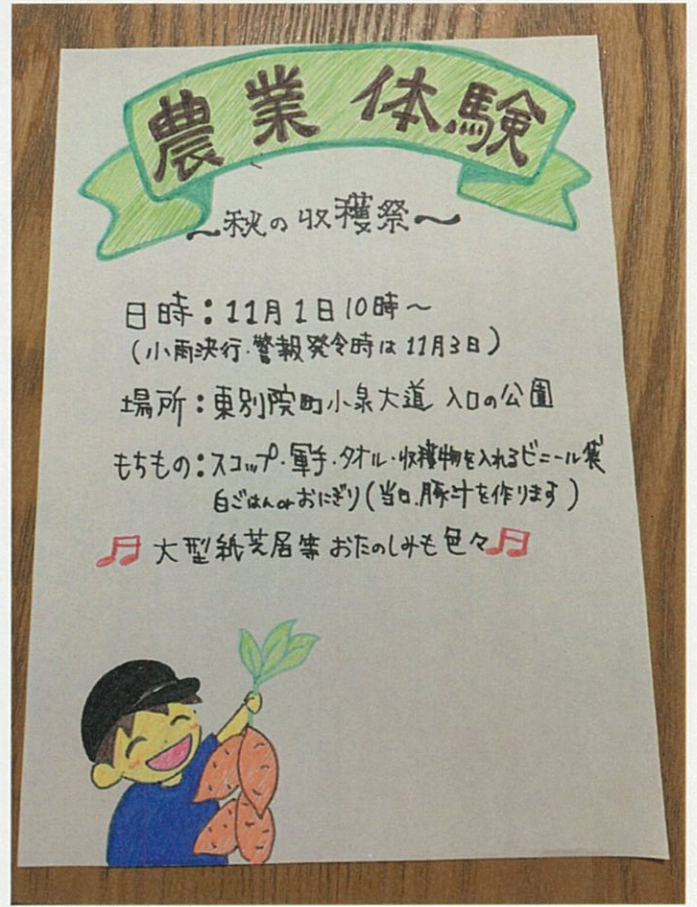 農業体験
〜秋の収穫祭〜
日時：11月1日10時〜
（小雨決行・警報発令時は11月3日）
場所：東別院町小泉大道 入口の公園
もちもの：スコップ・軍手・タオル・収穫物を入れるビニール袋
白ごはんorおにぎり（当日、豚汁を作ります）
♫大型紙芝居等 おたのしみも色々♫